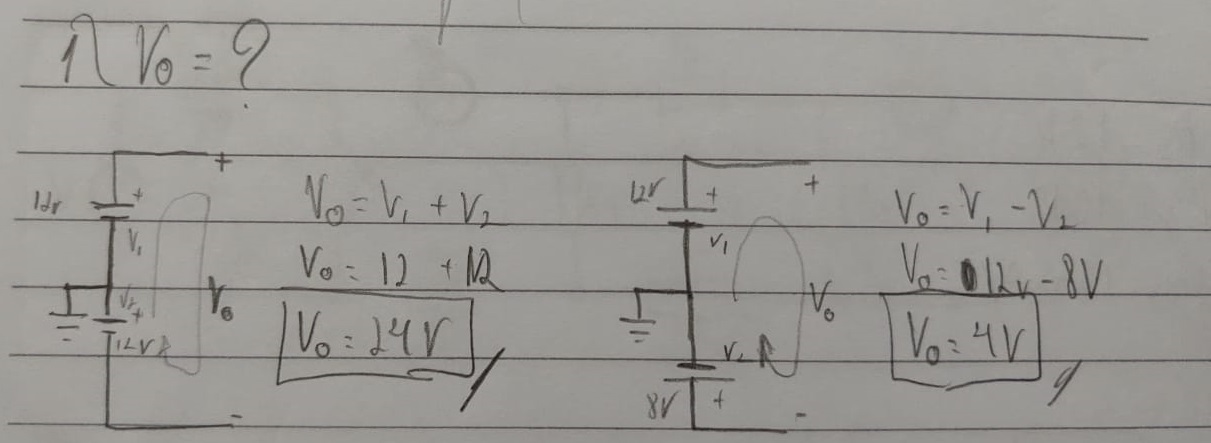 1) V₀ = ?
+
12V
+
V₁
V₂
+
12V
V₀
-
V₀ = V₁ + V₂
V₀ = 12 + 12
V₀ = 24V
12V
+
+
V₁
V₀
V₂
8V
+
-
V₀ = V₁ - V₂
V₀ = 12V - 8V
V₀ = 4V